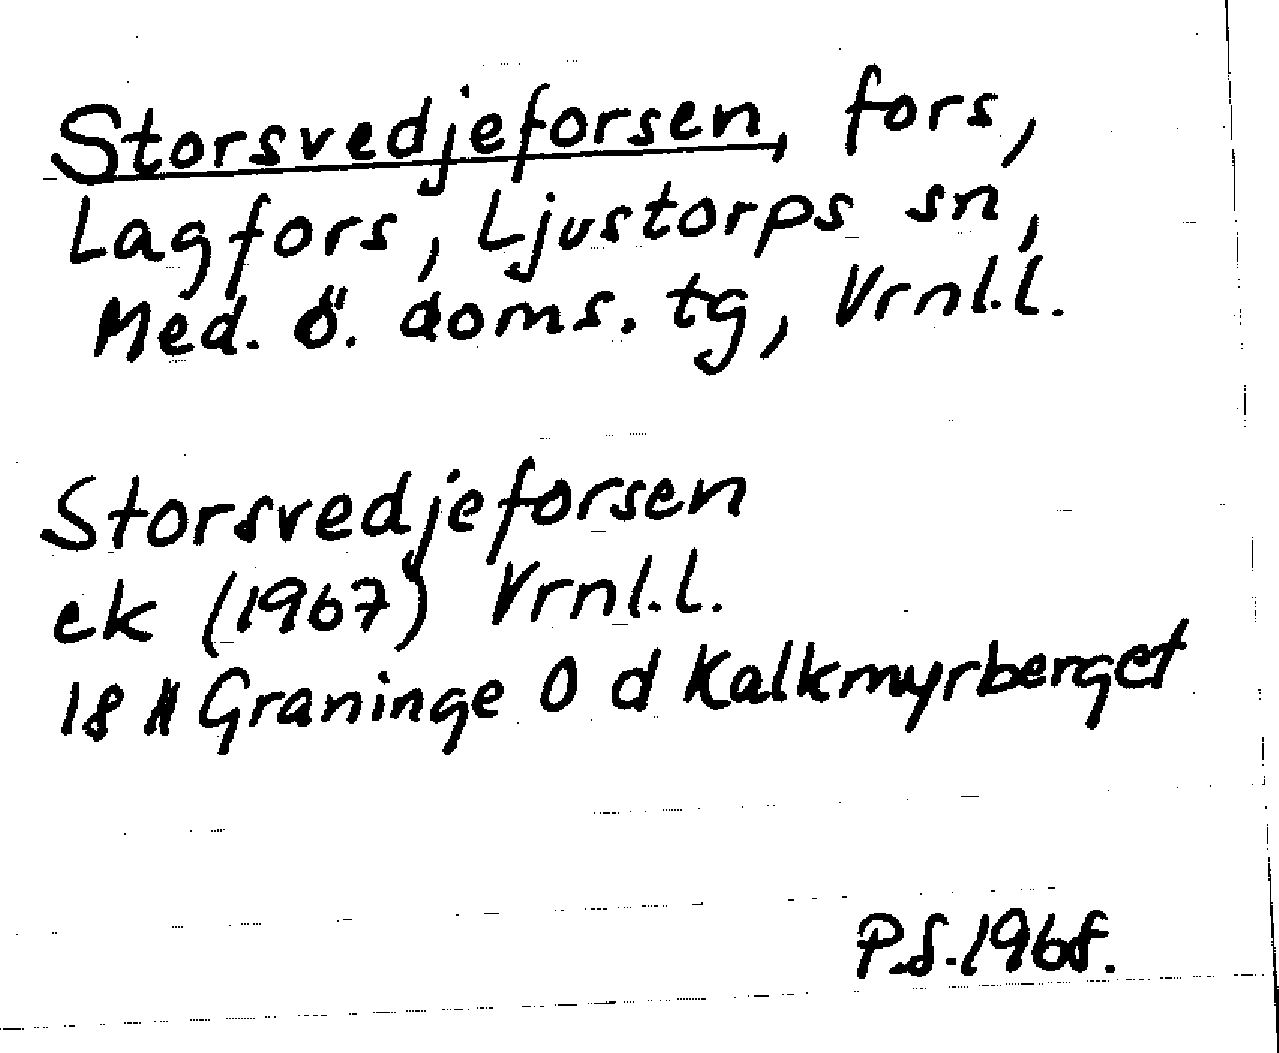 Storsvedjeforsen, fors,
Lagfors, Ljustorps sn,
Med. ö. doms. tg, Vrnl.l.
Storsvedjeforsen
ek (1967) Vrnl.l.
18 H Graninge O d Kalkmyrberget
P.S.1968.